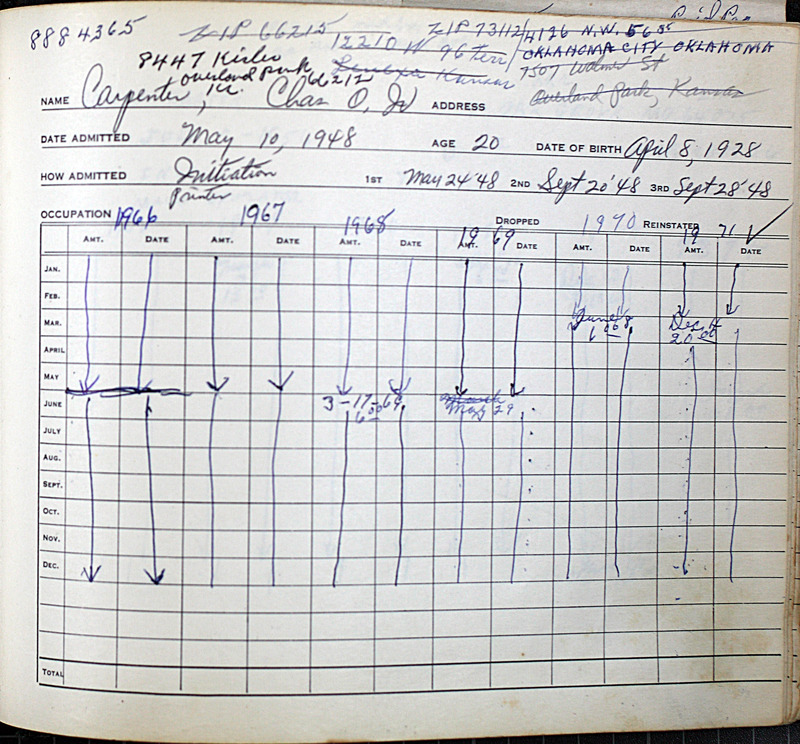 888 4365 ZIP 66215 ZIP 73112 4126 N.W. 56
12210 W 96 Terr OKLAHOMA CITY OKLAHOMA
8447 Lenexa Kansas 7507 St
Overland Park 66212 Overland Park, Kansas
NAME Carpenter, Chas O, Jr ADDRESS
DATE ADMITTED May 10, 1948 AGE 20 DATE OF BIRTH April 8, 1928
HOW ADMITTED Initiation 1ST May 24 '48 2ND Sept 20 '48 3RD Sept 28 '48
Printer
OCCUPATION DROPPED REINSTATED
1966 1967 1968 1969 1970 1971
AMT. DATE AMT. DATE AMT. DATE AMT. DATE AMT. DATE AMT. DATE
JAN.
FEB.
MAR. June 8 Dec 4
6 00 20 00
APRIL
MAY
JUNE 3-17-69 March
6 00 May 29
JULY
AUG.
SEPT.
OCT.
NOV.
DEC.
TOTAL